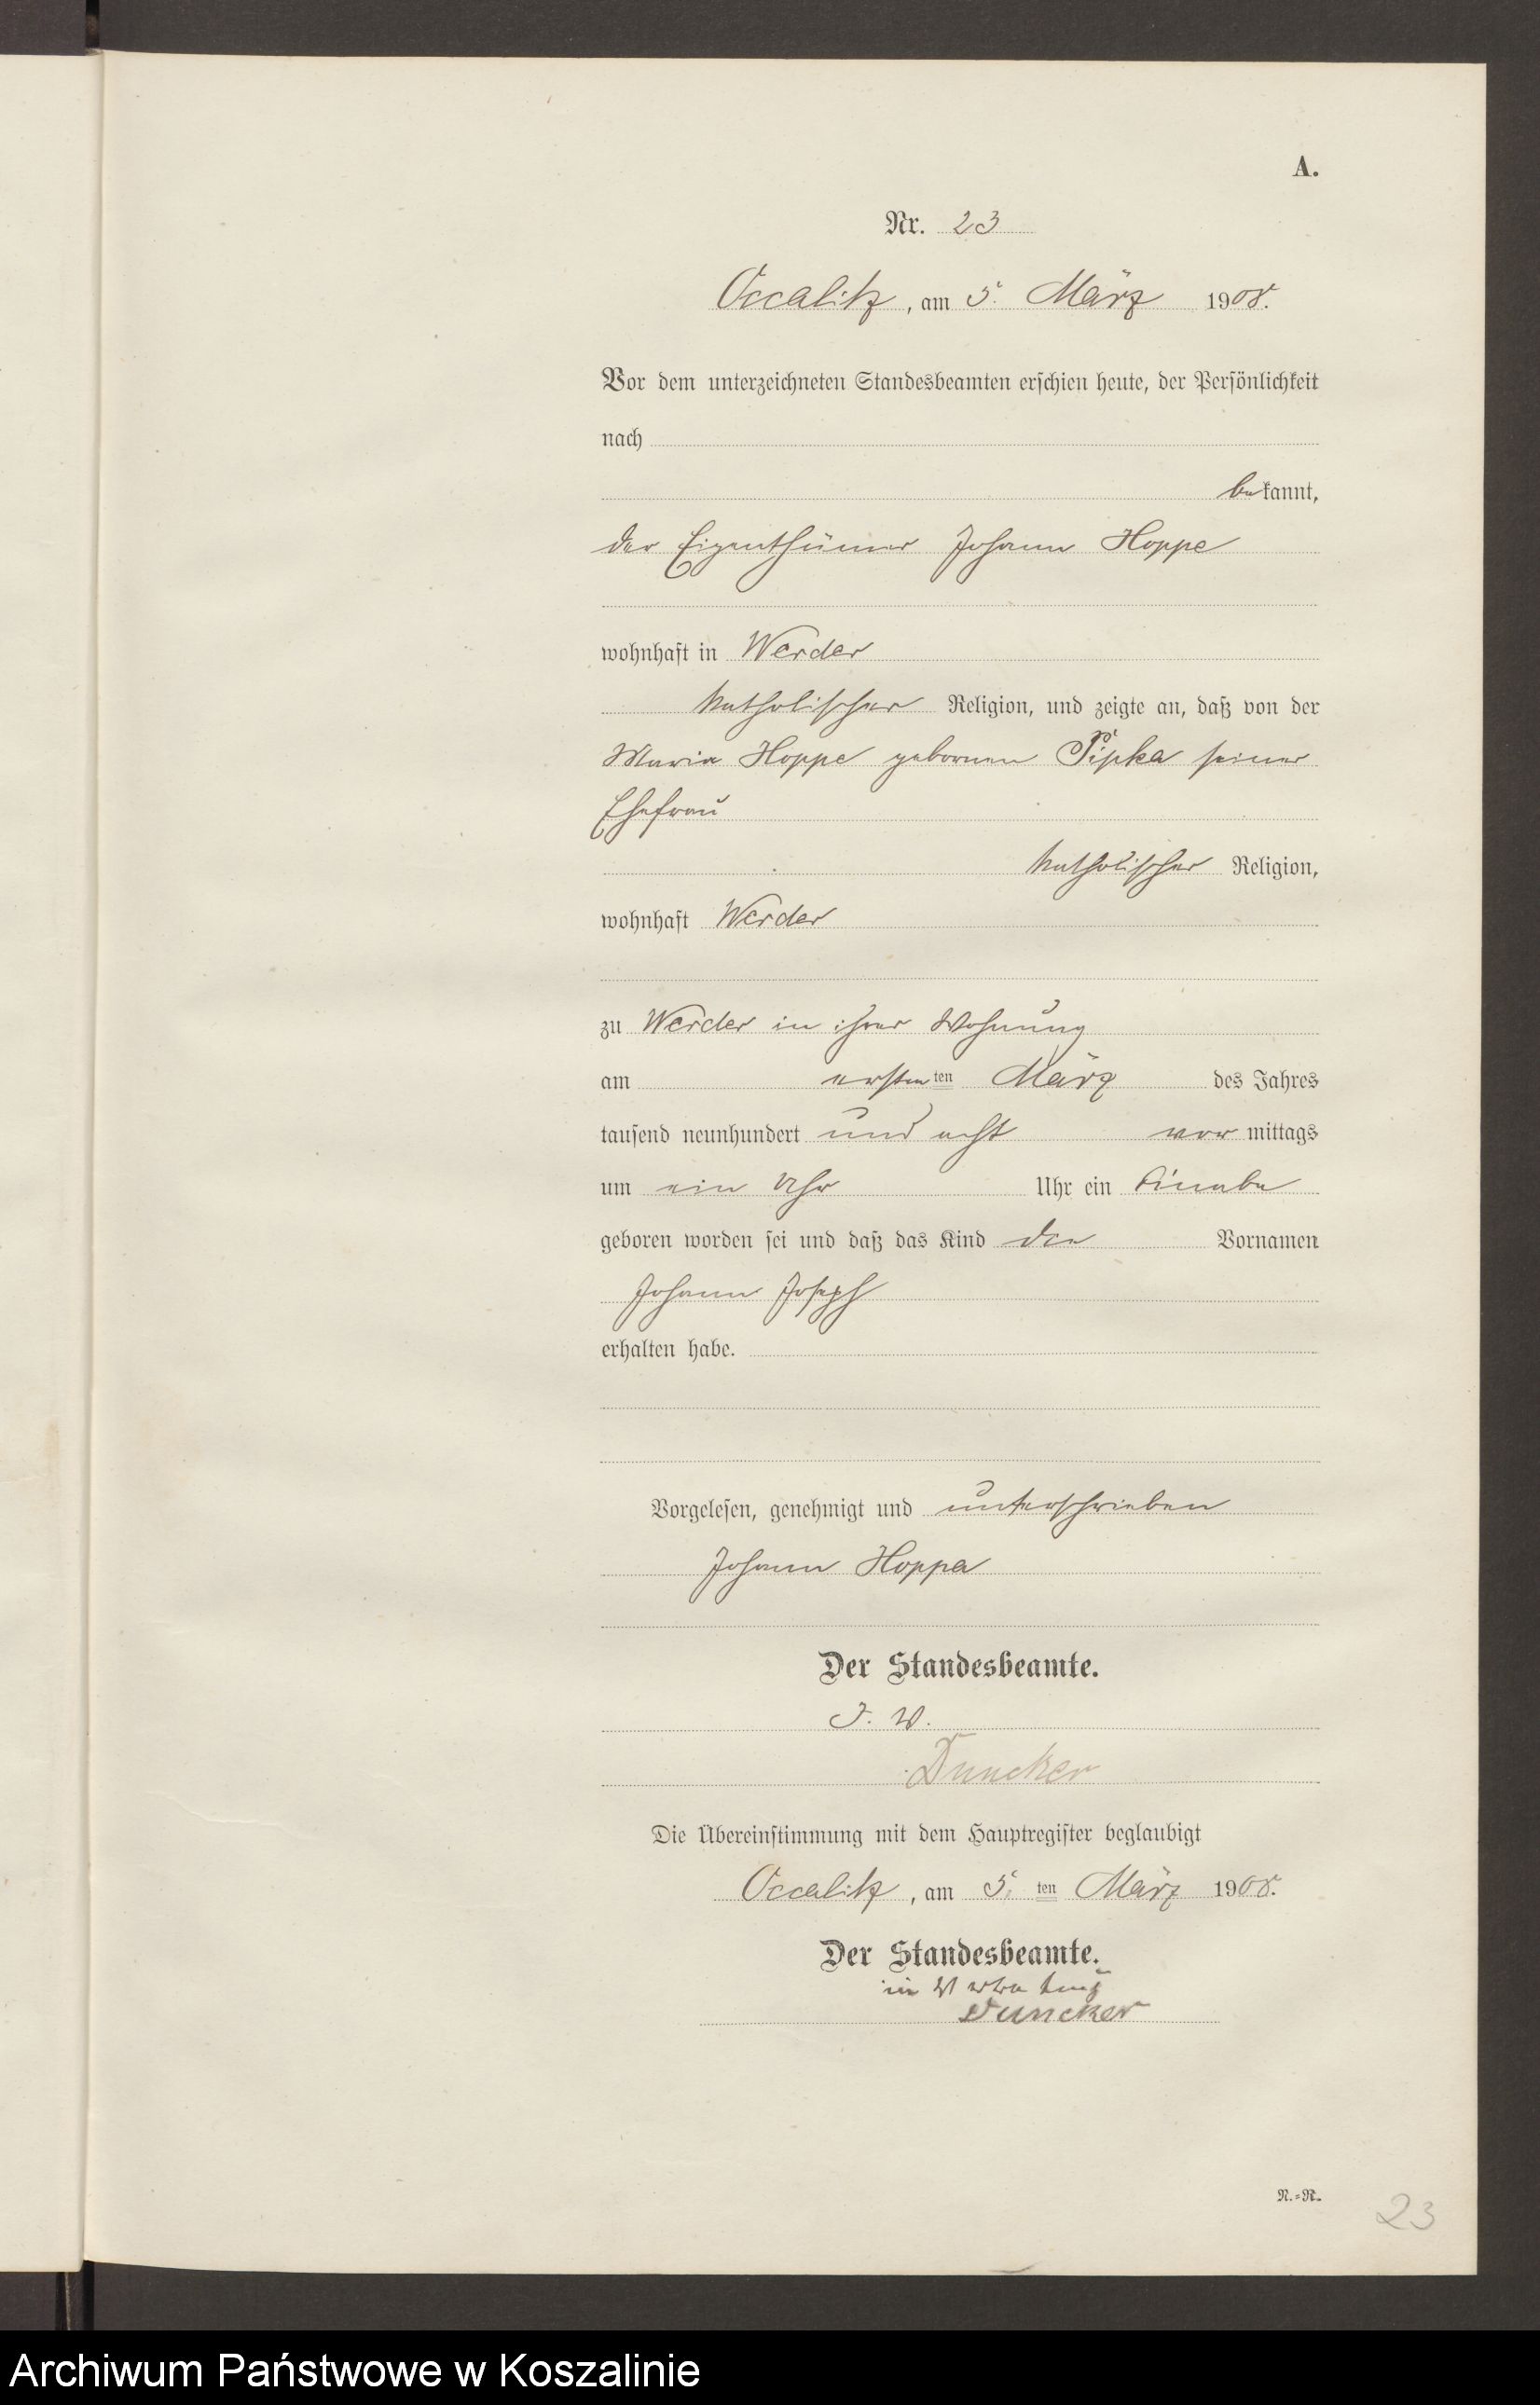 A.
Nr. 23
Occalitz, am 5. März 1908.
Vor dem unterzeichneten Standesbeamten erschien heute, der Persönlichkeit
nach
bekannt,
der Eigenthümer Johann Hoppe
wohnhaft in Werder
katholischer Religion, und zeigte an, daß von der
Maria Hoppe gebornen Pipka seiner
Ehefrau
katholischer Religion,
wohnhaft Werder
zu Werder in ihrer Wohnung
am ersten ten März des Jahres
tausend neunhundert und acht vor mittags
um ein Uhr Uhr ein Knabe
geboren worden sei und daß das Kind den Vornamen
Johann Joseph
erhalten habe.
Vorgelesen, genehmigt und unterschrieben
Johann Hoppe
Der Standesbeamte.
J. V.
Duncker
Die Übereinstimmung mit dem Hauptregister beglaubigt
Occalitz, am 5. ten März 1908.
Der Standesbeamte.
in Vertretung
Duncker
N.=R.
23
Archiwum Państwowe w Koszalinie